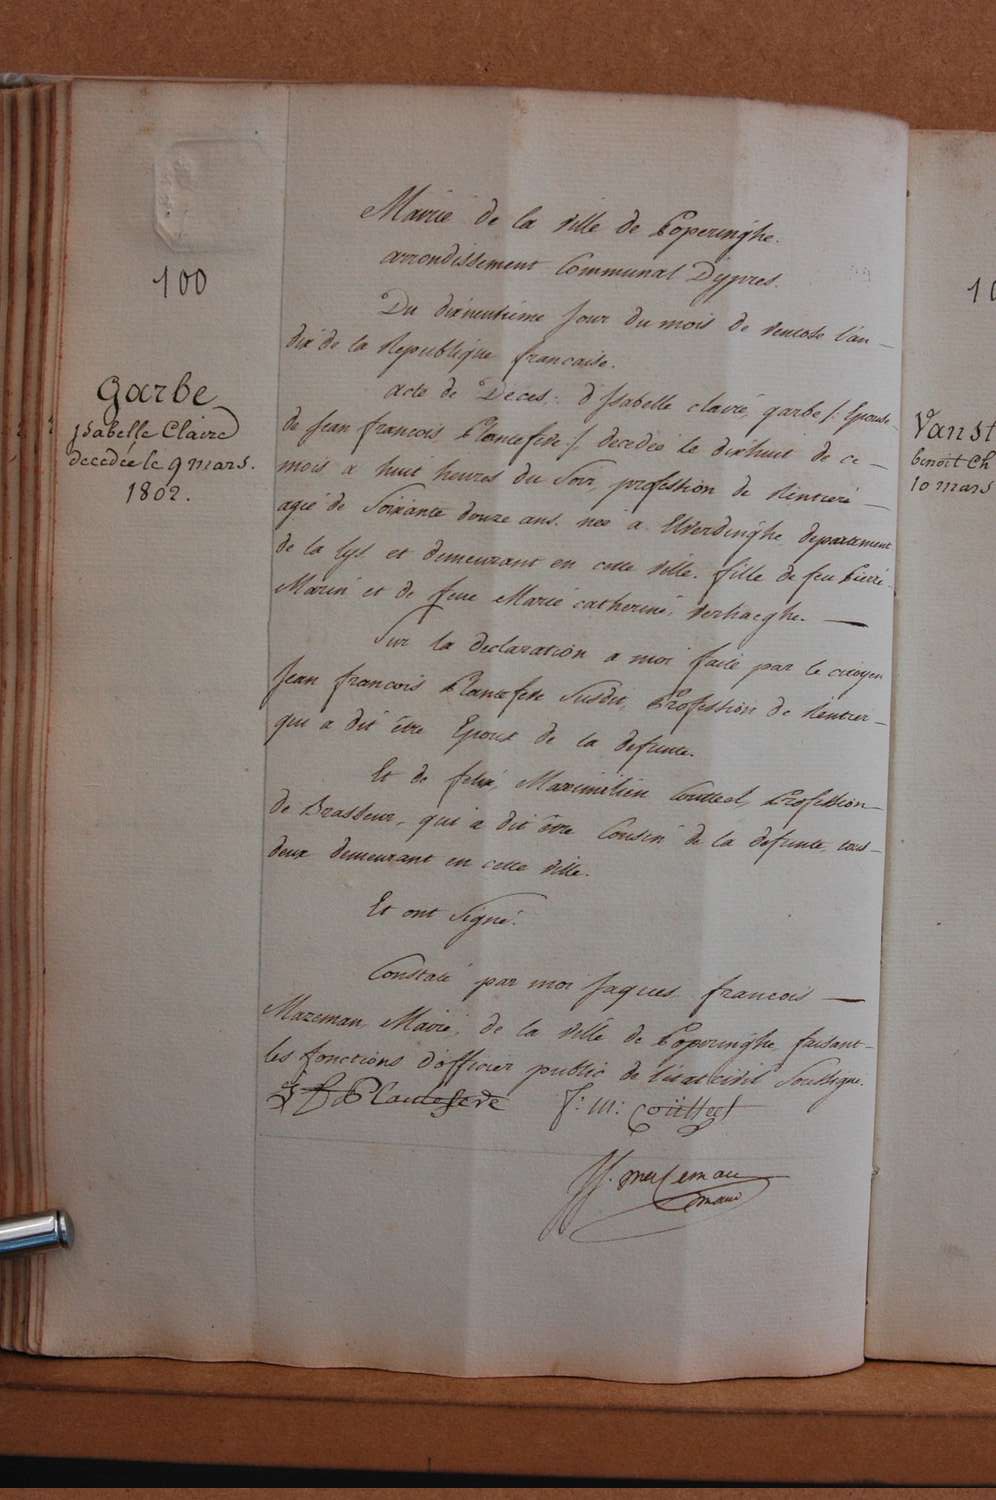 100
garbe
ysabelle Claire
decedée le 9 mars.
1802.
Mairie de la ville de Poperinghe.
arrondissement Communal D'ypres.
Du dixneuvieme jour du mois de ventose l'an
dix de la Republique francaise.
acte de Deces, d'Isabelle claire garbe /: Epouse
de Jean francois Plancefeve :/ decedée le dixhuit de ce
mois a huit heures du Soir, profession de Rentiere
agée de Soixante douze ans. née a Elverdinghe departement
de la lys et demeurant en cette ville. fille de feu Pierre
Marin et de feue Marie catherine verhaeghe.
Sur la declaration a moi faite par le citoyen
Jean francois Plancefeve Susdit, Profession de Rentier
qui a dit être Epoux de la defunte.
Et de felix Maximilien Coutteel, Profession
de Brasseur, qui a dit être Cousin de la defunte, tous
deux demeurant en cette ville.
Et ont Signé.
Constaté par moi Jaques francois
Mazeman, Maire, de la ville de Poperinghe, faisant
les fonctions d'officier public de l'etat civil Soussigné.
F: m: coütteel
maire
10
Vanst
benoit Ch
10 mars